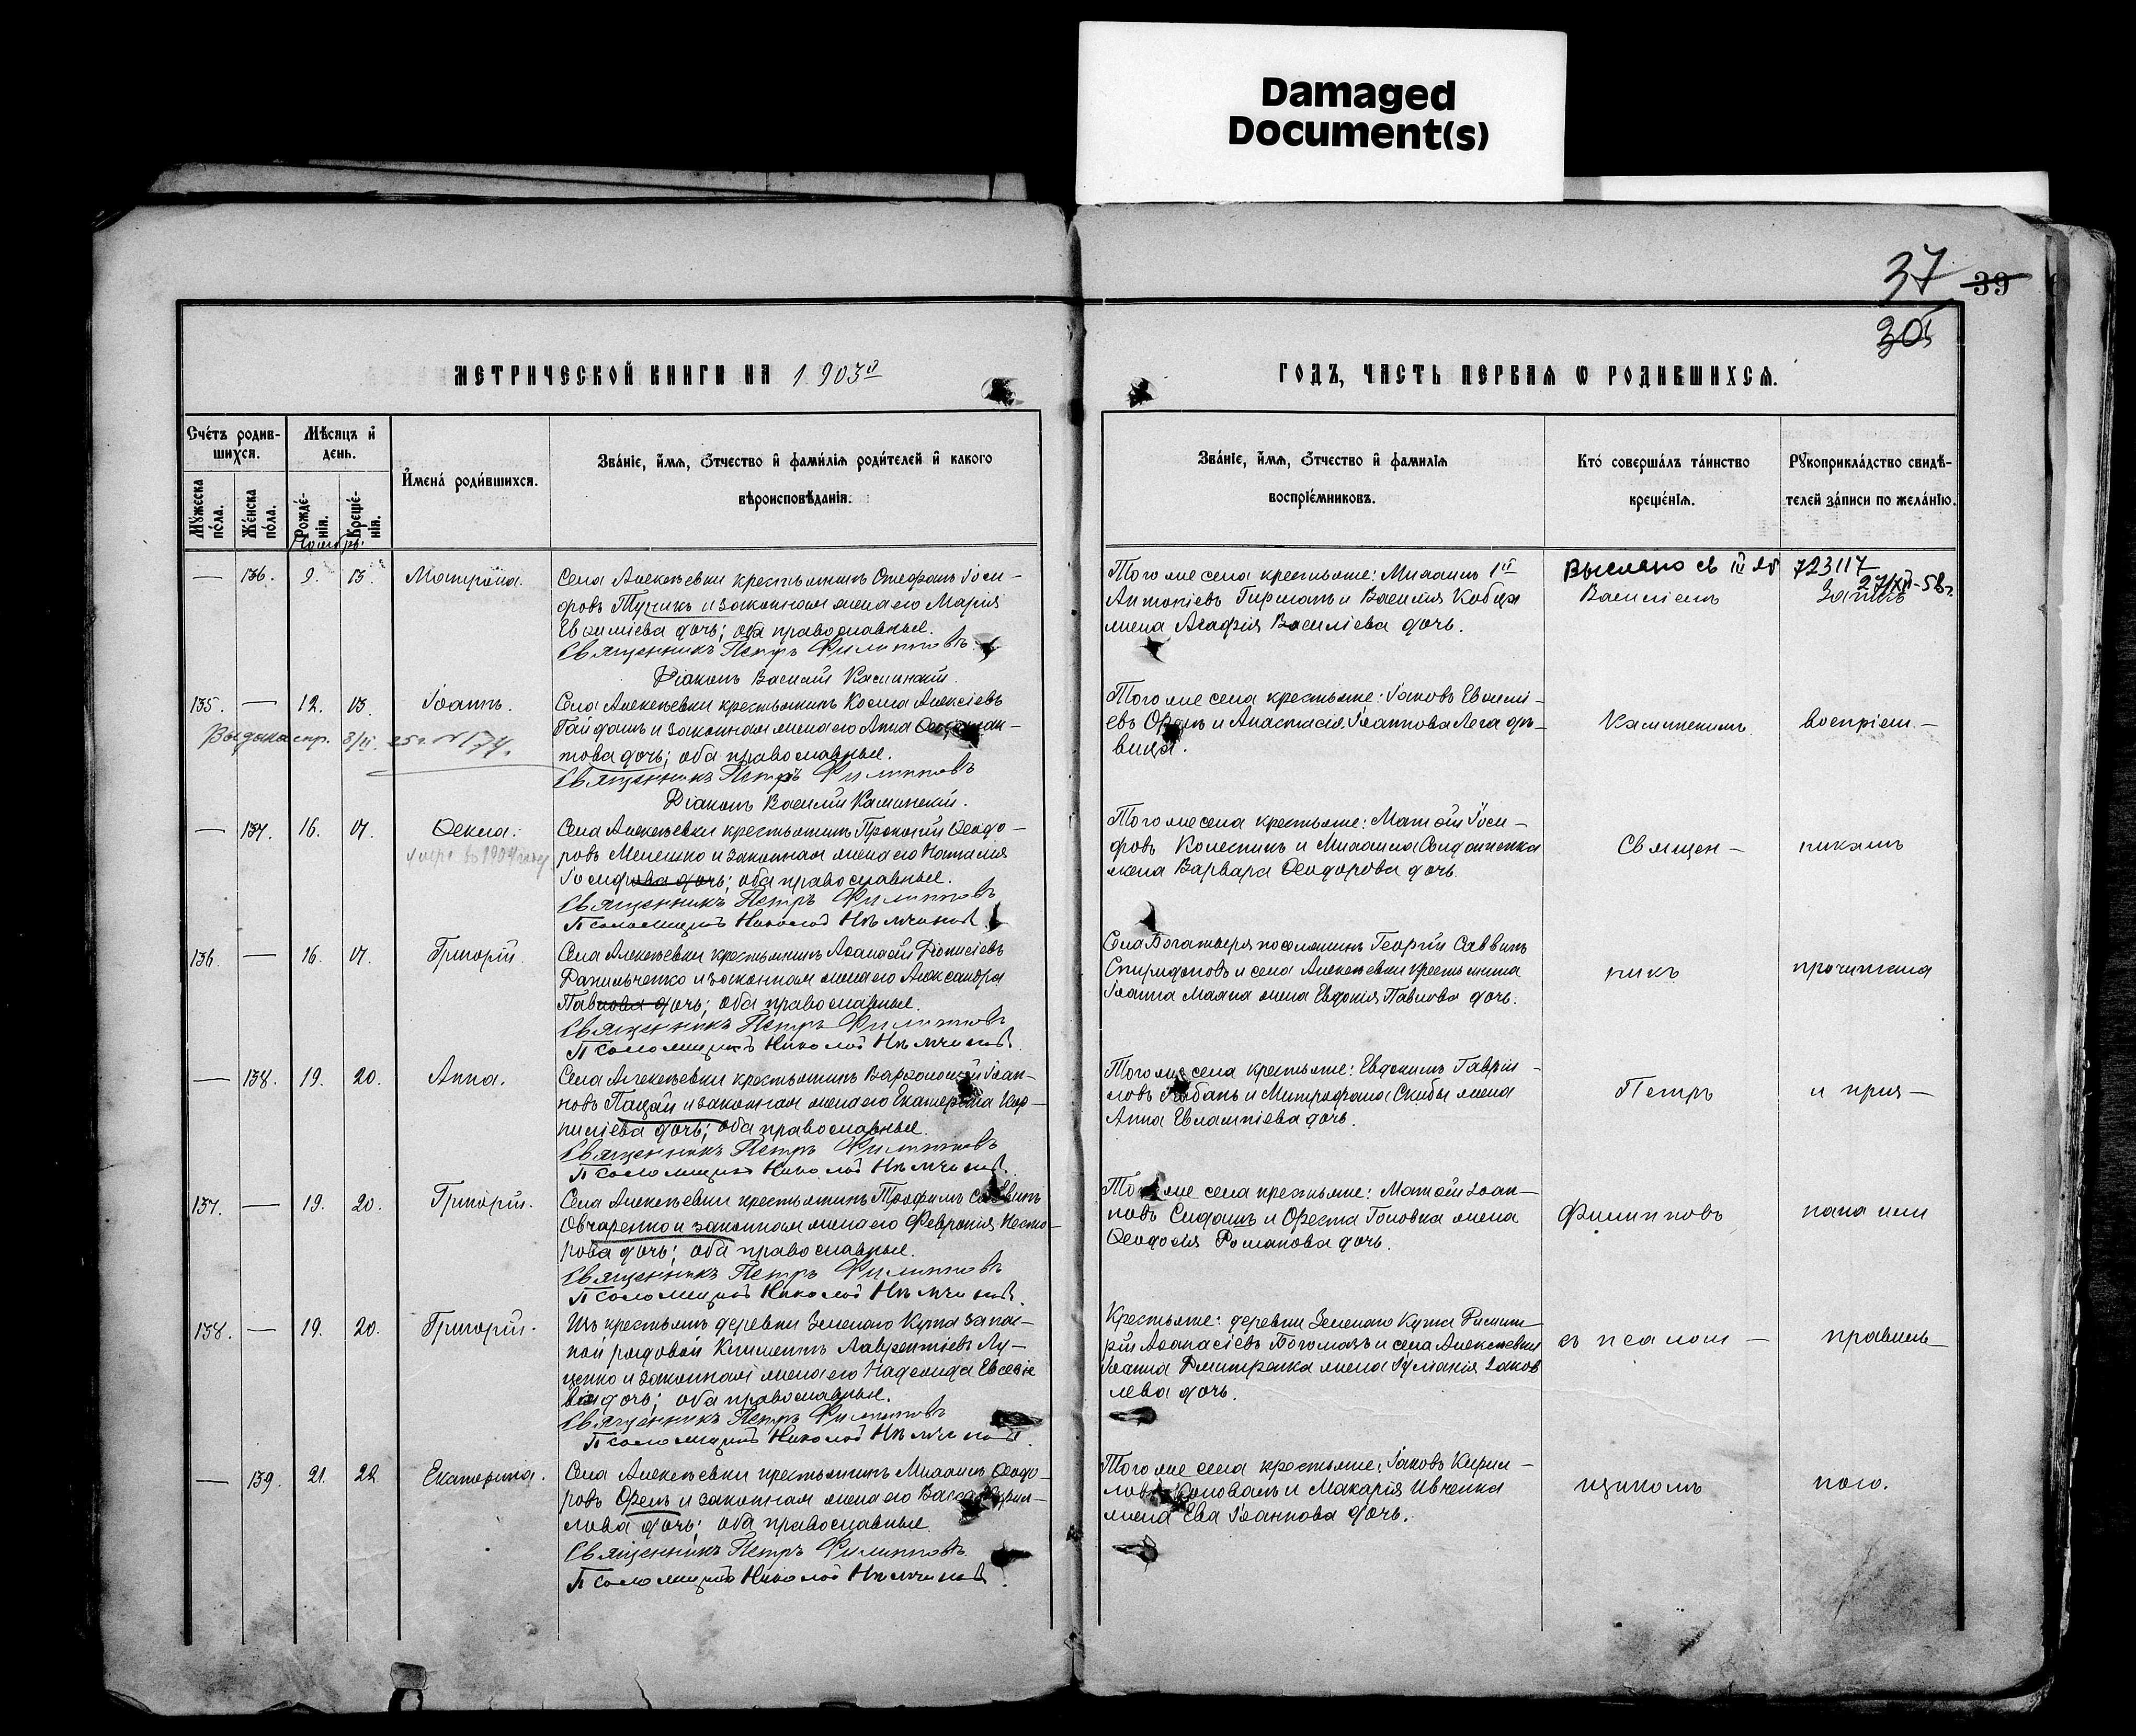 Damaged
Document(s)
37
39
МЕТРИЧЕСКОЙ КНИГИ НА 1903й
ГОДЪ, ЧАСТЬ ПЕРВАЯ Ѡ РОДИВШИХСЯ.
Счетъ родив-
шихся.
Мѣсяцъ и
день.
Мужеска
пола.
Женска
пола.
Рожде-
нія.
Креще-
нія.
Имена родившихся.
Званіе, имя, отчество и фамилія родителей и какого
вѣроисповѣданія.
Званіе, имя, отчество и фамилія
воспріемниковъ.
Кто совершалъ таинство
крещенія.
Рукоприкладство свидѣ-
телей записи по желанію.
Ноябрь.
— 136. 9. 13. Матрона.
Села Алексѣевки крестьянинъ Стефанъ Іоси-
фовъ и законная жена его Марія
Евѳиміева дочь; оба православные.
Священникъ Петръ Филипповъ
Діаконъ Василій Каминскій.
Того же села крестьяне: Михаилъ 1й
Антоніевъ и Василія Кобца
жена Агафія Василіева дочь.
Выслано св
723117
27/XII-58г.
Василіемъ
135. — 12. 13. Іоаннъ.
Села Алексѣевки крестьянинъ Косма Алексіевъ
Гайданъ и законная жена его Анна
това дочь; оба православные.
Священникъ Петръ Филипповъ
Діаконъ Василій Каминскій.
Выдана спр. 8/II 25г. №174.
Того же села крестьяне: Іаковъ Евѳимі-
евъ и Анастасія Іоаннова Лега дѣ-
вица.
Каминскимъ
воспріем.—
— 137. 16. 17. Ѳекла.
умре въ 1904 году
Села Алексѣевки крестьянинъ Прокопій Ѳеодо-
ровъ Мелешко и законная жена его Наталія
Іосифова дочь; оба православные.
Священникъ Петръ Филипповъ
Псаломщикъ Николай
Того же села крестьяне: Матѳій Іоси-
фовъ Колесникъ и Михаила
жена Варвара Ѳеодорова дочь.
Священ-
никамъ
136. — 16. 17. Григорій.
Села Алексѣевки крестьянинъ Аѳанасій Діонисіевъ
Данильченко и законная жена его Александра
Павлова дочь; оба православные.
Священникъ Петръ Филипповъ
Псаломщикъ Николай
Села Богатыря поселянинъ Георгій Саввинъ
Спиридоновъ и села Алексѣевки крестьянина
Іоанна жена Евдокія Павлова дочь.
никъ
прочитана
— 138. 19. 20. Анна.
Села Алексѣевки крестьянинъ Варѳоломей Іоан-
новъ Пацай и законная жена его Екатерина Кор-
нилiева дочь; оба православные.
Священникъ Петръ Филипповъ
Псаломщикъ Николай
Того же села крестьяне: Евдокимъ Гаврiи-
ловъ и Митрофана Скибы жена
Анна Евлампіева дочь.
Петръ
и при—
137. — 19. 20. Григорій.
Села Алексѣевки крестьянинъ Трофимъ Саввинъ
Овчаренко и законная жена его Февронія Несто-
рова дочь; оба православные.
Священникъ Петръ Филипповъ
Псаломщикъ Николай
Того же села крестьяне: Матѳій Іоан-
новъ и Ореста Головка жена
Ѳеодосія Романова дочь.
Филипповъ
138. — 19. 20. Григорій.
Изъ крестьянъ деревни Зеленаго Кута запас-
ной рядовой Климентъ Лаврентіевъ Лу-
ценко и законная жена его Надежда Евсеві-
ева дочь; оба православные.
Священникъ Петръ Филипповъ
Псаломщикъ Николай
Крестьяне: деревни Зеленаго Кута Димит-
рій Аѳанасіевъ Богомазъ и села Алексѣевки
Іоанна Дмитренка жена Іуліанія Іаков
лева дочь.
съ псалом—
правиль
— 139. 21. 22. Екатерина.
Села Алексѣевки крестьянинъ Михаилъ Ѳеодо-
ровъ и законная жена его Васса Кирил-
лова дочь; оба православные.
Священникъ Петръ Филипповъ
Псаломщикъ Николай
Того же села крестьяне: Іаковъ Кирил-
ловъ Коновалъ и Макарія Ивченка
жена Ева Іоаннова дочь.
щикомъ
ною.